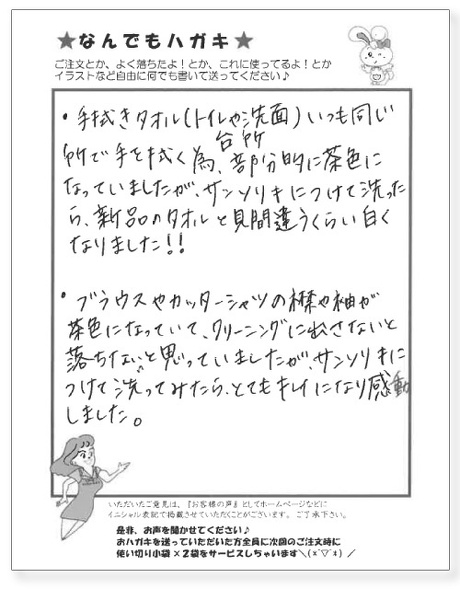 ★なんでもハガキ★
ご注文とか、よく落ちたよ！とか、これに使ってるよ！とか
イラストなど自由に何でも書いて送ってください♪
・手拭きタオル(トイレや洗面)いつも同じ
台所
所で手を拭く為、部分的に茶色に
なっていましたが、サンソリキにつけて洗った
ら、新品のタオルと見間違うくらい白く
なりました!!
・ブラウスやカッターシャツの襟や袖が
茶色になっていて、クリーニングに出さないと
落ちないと思っていましたが、サンソリキに
つけて洗ってみたら、とてもキレイになり感動
しました。
いただいたご意見は、『お客様の声』としてホームページなどに
イニシャル表記で掲載させていただくことがございます。ご了承下さい。
是非、お声を聞かせてください♪
おハガキを送っていただいた方全員に次回のご注文時に
使い切り小袋×2袋をサービスしちゃいます＼(*´▽`*)／